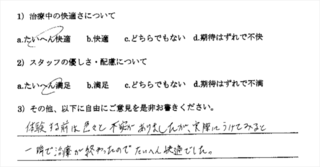 1) 治療中の快適さについて
a.たいへん快適 b.快適 c.どちらでもない d.期待はずれで不快
2) スタッフの優しさ・配慮について
a.たいへん満足 b.満足 c.どちらでもない d.期待はずれで不満
3) その他、以下に自由にご意見を是非お書きください。
経験する前は色々と不安がありましたが、実際にうけてみると
一時で治療が終わったのでたいへん快適でした。